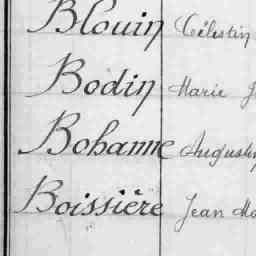 Blouin Célestin
Bodin Marie J
Bohanne Augustin
Boissière Jean Ma